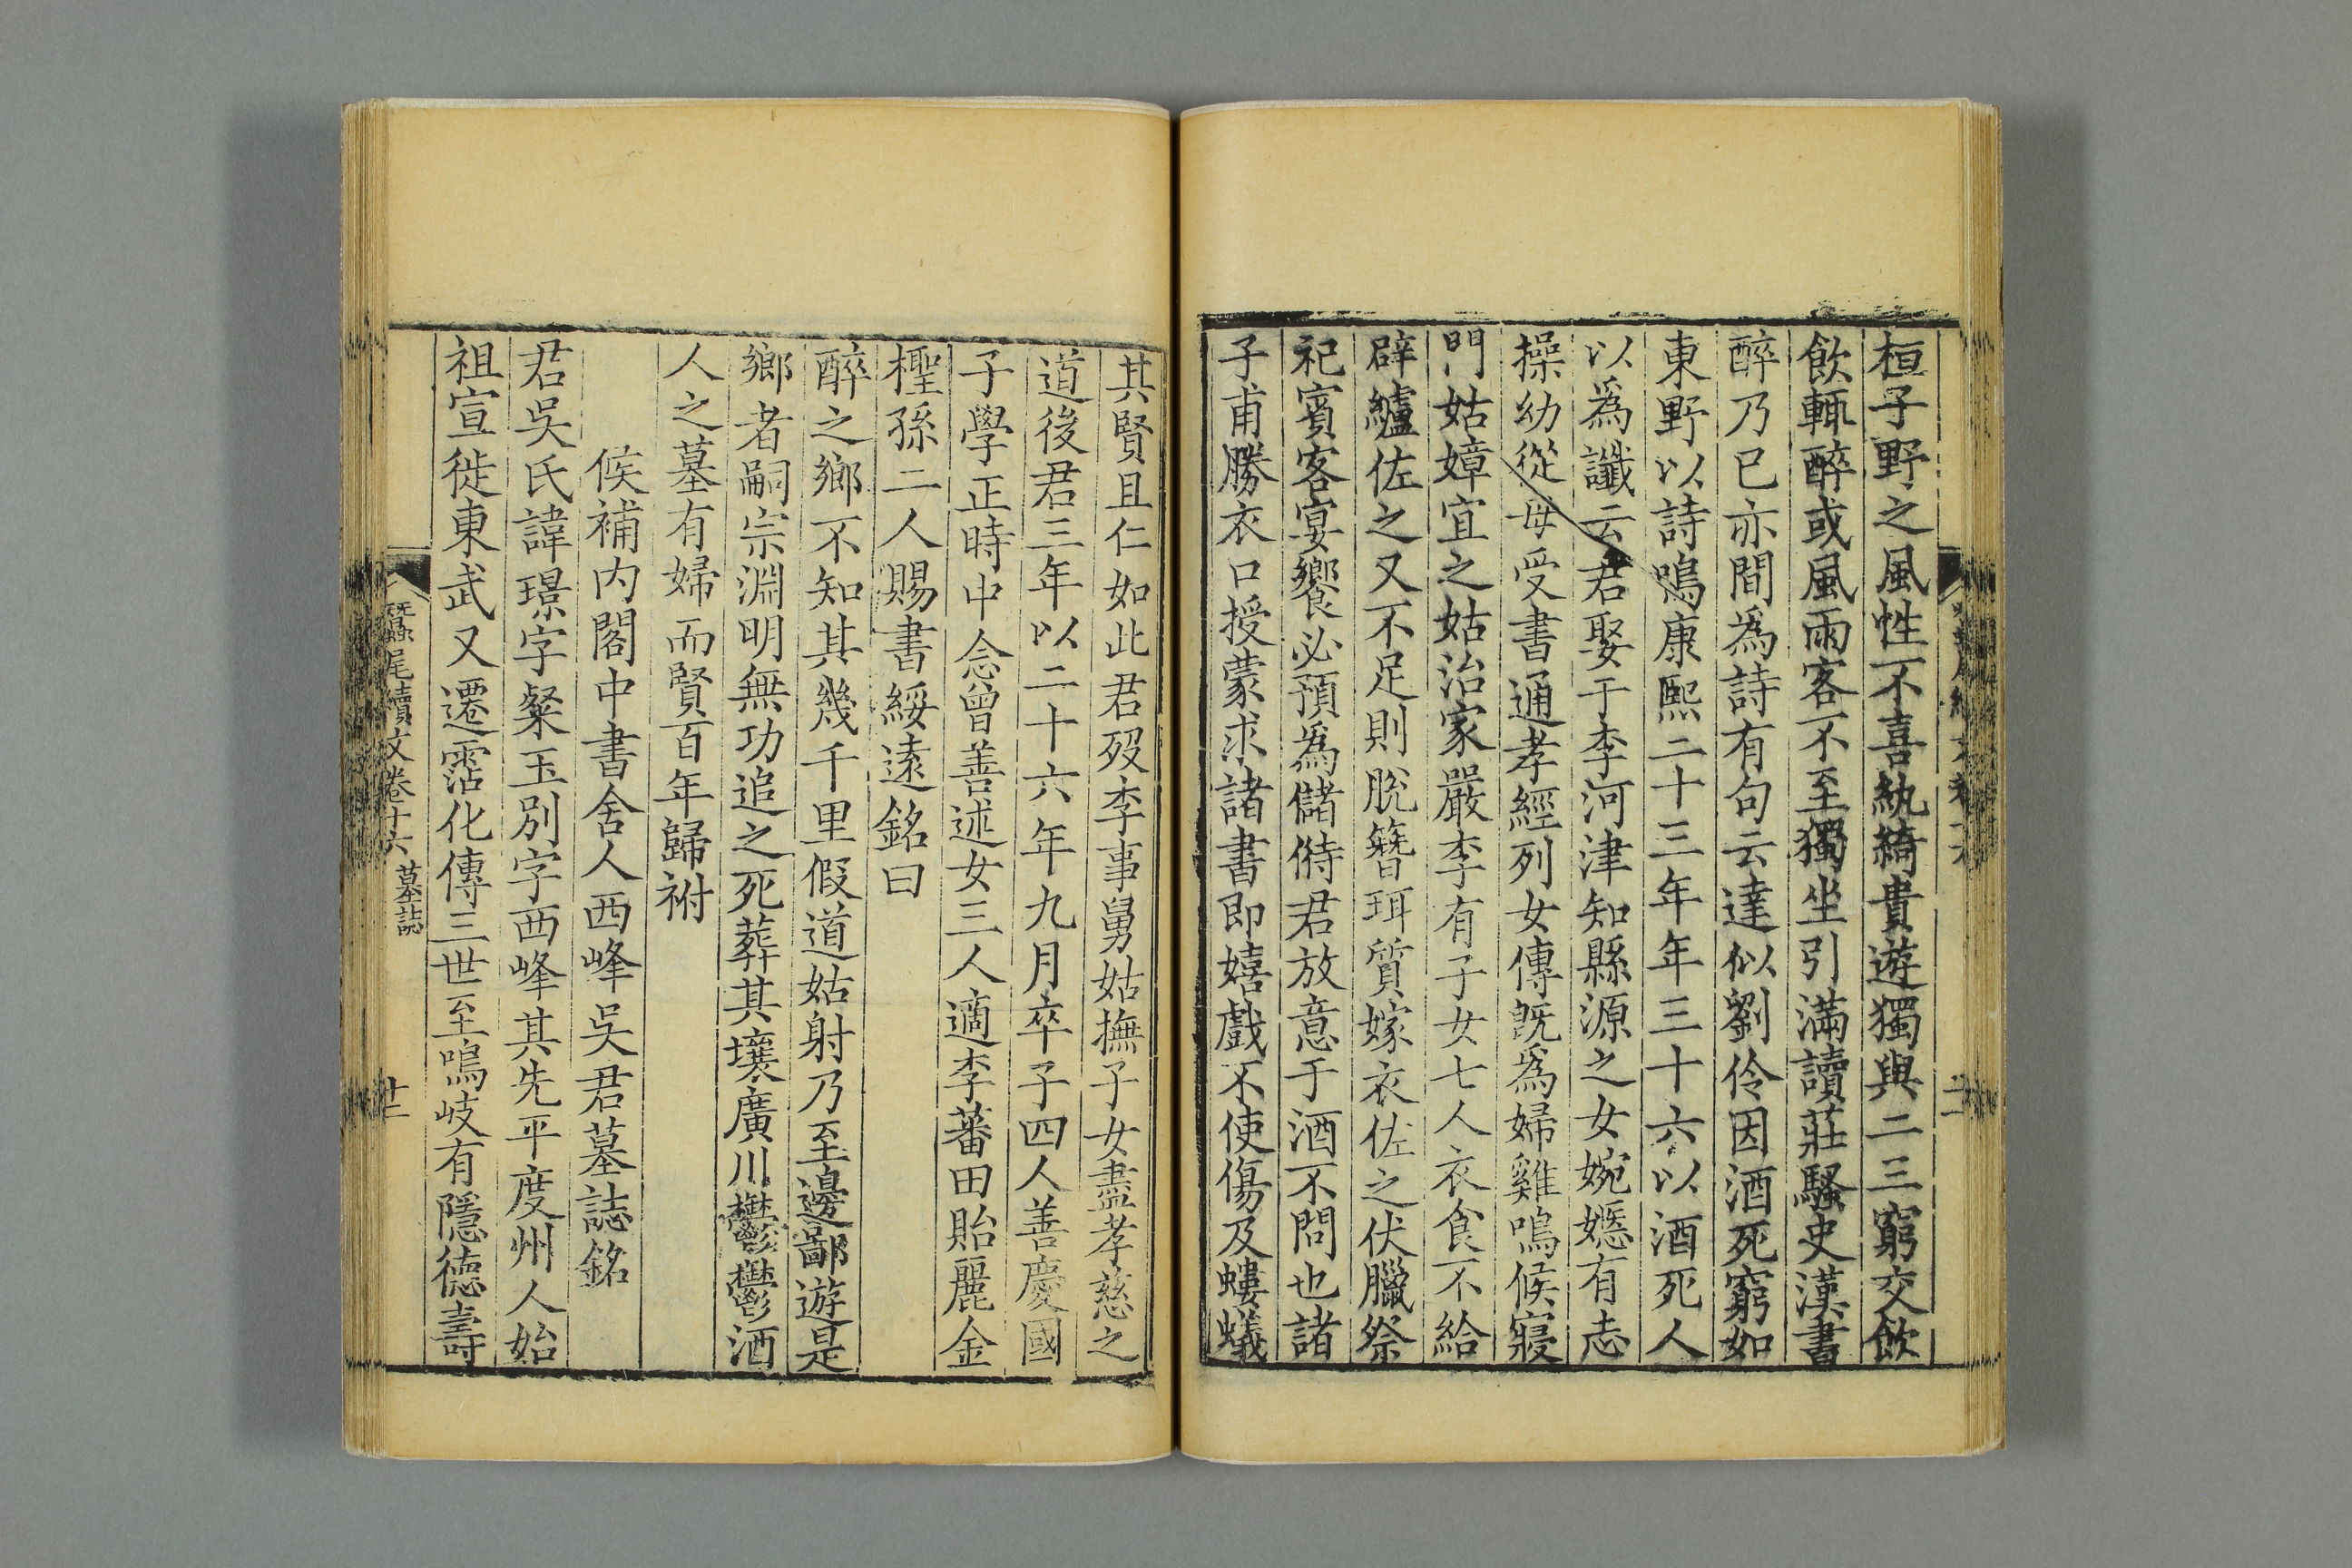 桓子野之風性不喜紈綺貴遊獨與二三窮交飲
飲輒醉或風雨客不至獨坐引滿讀莊騷史漢書
醉乃已亦間為詩有句云達似劉伶因酒死窮如
東野以詩鳴康熙二十三年年三十六以酒死人
以為讖云君娶于李河津知縣源之女婉嫕有志
操幼從母受書通孝經列女傳既為婦雞鳴候寢
門姑嫜宜之姑治家嚴李有子女七人衣食不給
辟纑佐之又不足則脫簪珥質嫁衣佐之伏臘祭
祀賓客宴饗必預為儲偫君放意于酒不問也諸
子甫勝衣口授蒙求諸書即嬉戲不使傷及螻蟻
其賢且仁如此君歿李事舅姑撫子女盡孝慈之
道後君三年以二十六年九月卒子四人善慶國
子學正時中念曾善述女三人適李蕃田貽麗金
檉孫二人賜書綏遠銘曰
醉之鄉不知其幾千里假道姑射乃至邊鄙遊是
鄉者嗣宗淵明無功追之死葬其壤廣川鬱鬱酒
人之墓有婦而賢百年歸祔
候補內閣中書舍人西峰吳君墓誌銘
君吳氏諱璟字粲玉別字西峰其先平度州人始
祖宣徙東武又遷霑化傳三世至鳴岐有隱德壽
蠶尾續文卷十六 墓誌 十二